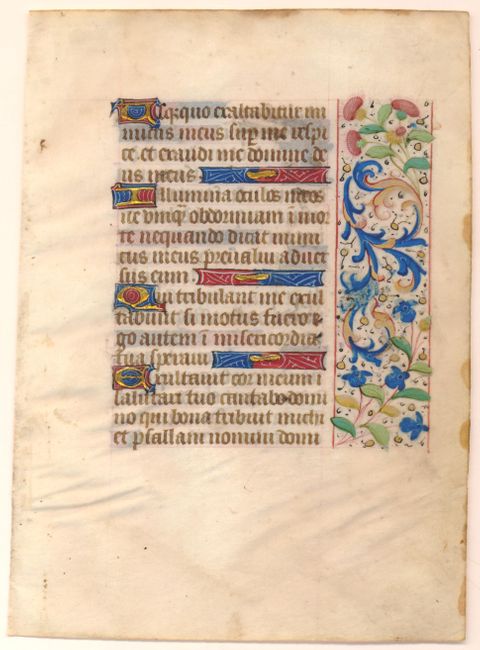 Usquequo exaltabitur ini
micus meus sup me respi
ce et exaudi me domine de
us meus
Illumina oculos meos
ne vnuq obdormiam i mor
te nequando dicat inimi
cus meus preualui aduer
sus eum
Qui tribulant me exul
tabunt si motus fuero e
go autem i misericordia
tua speraui
Exultauit cor meum i
salutari tuo cantabo domi
no qui bona tribuit michi
et psallam nomini domi